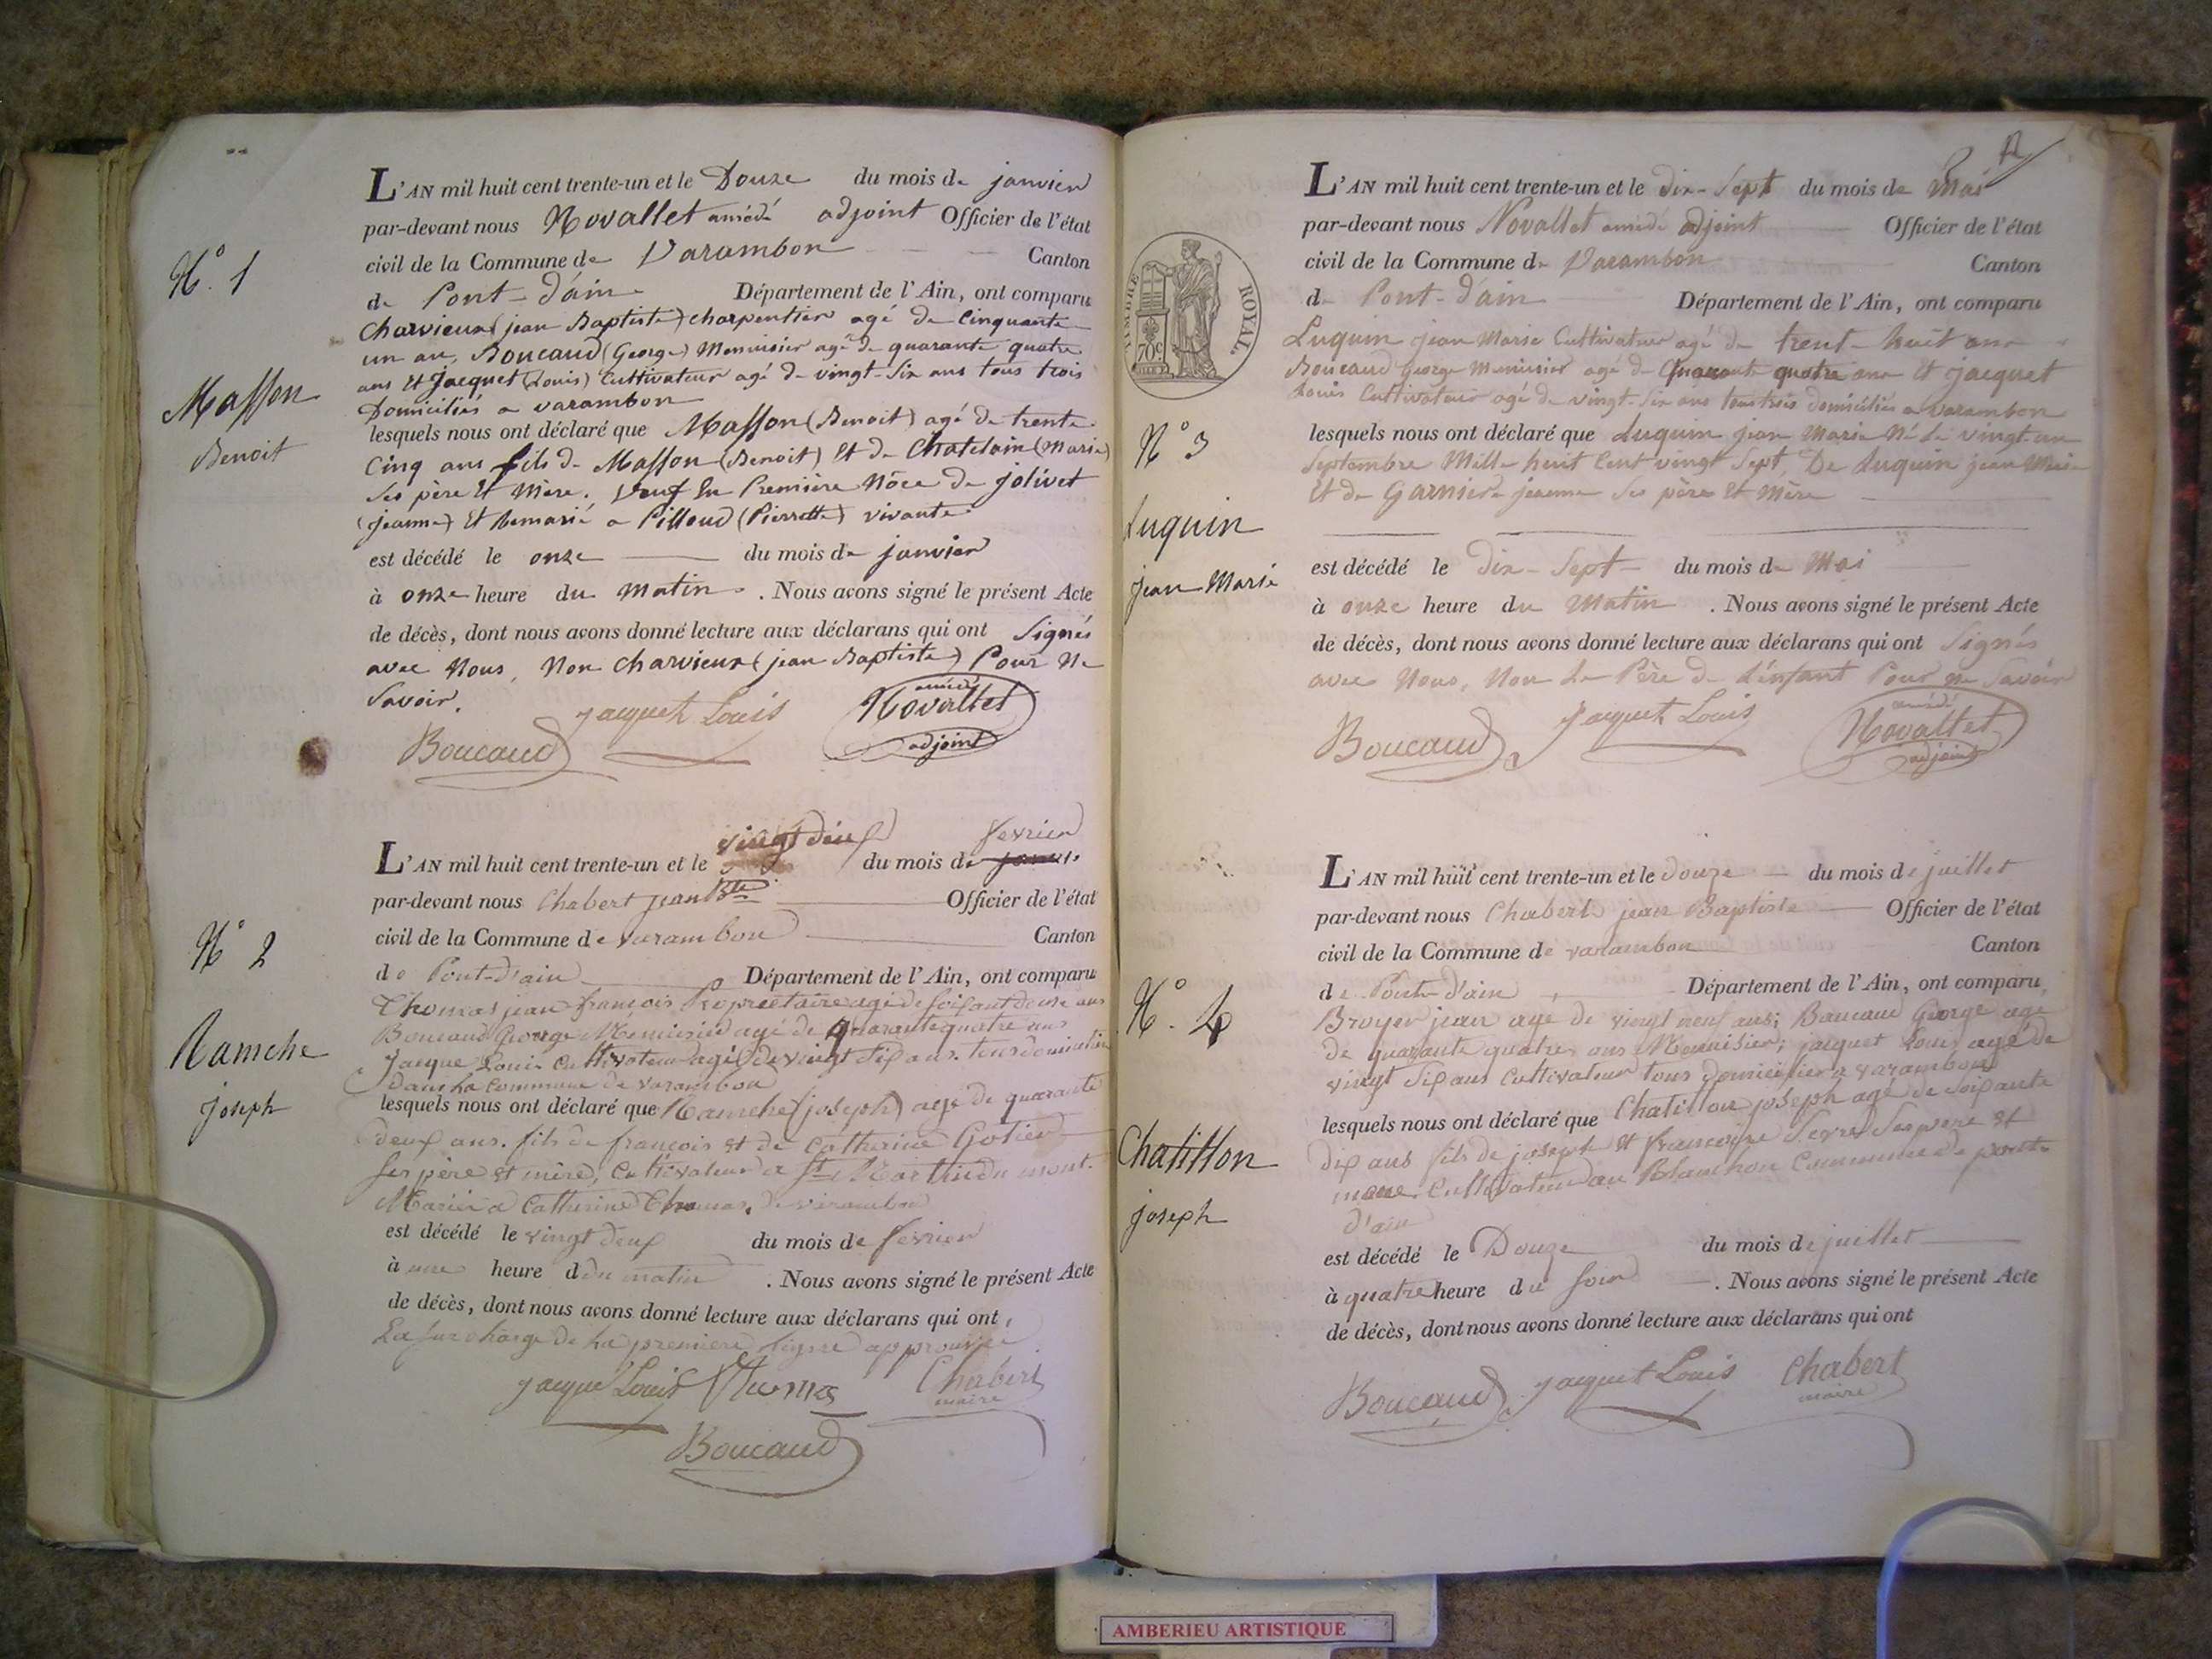 N.° 1
Masson
Benoit
L'AN mil huit cent trente-un et le Douze du mois de janvier
par-devant nous Novallet amédé adjoint Officier de l'état
civil de la Commune de Varambon Canton
de Pont-d'ain Département de l'Ain, ont comparu
Charvieux (jean Baptiste) charpentier agé de Cinquante
un an, Boucaud (George) Menuisier agé de quarante quatre
ans Et Jacquet (Louis) Cultivateur agé de vingt-Six ans tous trois
Domiciliés a varambon
lesquels nous ont déclaré que Masson (Benoit) agé de trente
Cinq ans fils de Masson (Benoit) Et de Chatelain (Marie)
Ses père Et Mère. Veuf En Première Nôce de jolivet
(jeanne) Et Remarié a Pilloud (Pierrette) vivante
est décédé le onze du mois de janvier
à onze heure du Matin . Nous avons signé le présent Acte
de décès, dont nous avons donné lecture aux déclarans qui ont Signés
avec Nous, Non Charvieux (jean Baptiste) Pour Ne
Savoir.
jacquet Louis
amédé
Novallet
adjoint
Boucaud
N° 2
Ramche
joseph
vingt deux fevrier
L'AN mil huit cent trente-un et le du mois de
par-devant nous Chabert jean Bte Officier de l'état
civil de la Commune de varambon Canton
de Pont-d'ain Département de l'Ain, ont comparu
Thomas jean françois Propriétaire agé de soixant douze ans
Boucaud George Menuisier agé de quarante quatre ans
jacque Louis Cultivateur agé de vingt six ans. tous domicilié
dans La commune de varambon
lesquels nous ont déclaré que Ramche (joseph) agé de quarante
deux ans. fils de françois et de Catherine Gotier
ses père et mère, Cultivateur a St Martin du mont.
Mariér a Catherine Thomas, de varambon
est décédé le vingt deux du mois de fevrier
à une heure d du matin . Nous avons signé le présent Acte
de décès, dont nous avons donné lecture aux déclarans qui ont
La surcharge de La premiere ligne approuvée
jacque Louis Thomas Chabert
maire
Boucaud
TIMBRE ROYAL.
70c.
N° 3
Luquin
jean Marie
L'AN mil huit cent trente-un et le dix-Sept du mois de Mai
par-devant nous Novallet amédé adjoint Officier de l'état
civil de la Commune de Varambon Canton
de Pont-d'ain Département de l'Ain, ont comparu
Luquin jean Marie Cultivateur agé de trent-huit ans
Boucaud George Menuisier agé de Quarante quatre ans Et jacquet
Louis Cultivateur agé de vingt-Six ans tous trois domiciliés a varambon
lesquels nous ont déclaré que Luquin jean Marie Né Le vingt-un
Septembre Mille huit Cent vingt Sept, De Luquin jean Marie
Et de Garnier jeanne Ses père Et Mère
est décédé le dix-Sept du mois de Mai
à onze heure du Matin . Nous avons signé le présent Acte
de décès, dont nous avons donné lecture aux déclarans qui ont Signés
avec Nous, Non Le Père de L'énfant Pour ne Savoir
Boucaud
jacquet Louis
amédé
Novallet
adjoint
N.° 4
Chatillon
joseph
L'AN mil huit cent trente-un et le douze du mois de juillet
par-devant nous Chabert jean Baptiste Officier de l'état
civil de la Commune de varambon Canton
de Pont-d'ain Département de l'Ain, ont comparu
Broyer jean agé de vingt neuf ans; Boucaud George agé
de quarante quatre ans Menuisier; jacquet Louis agé de
vingt six ans Cultivateur tous domicilier a varambon
lesquels nous ont déclaré que Chatillon joseph agé de soixante
dix ans fils de joseph et francoise Ses pere et
mere. Cultivateur au Blanchon Commune de pont
d'ain
est décédé le Douze du mois de juillet
à quatre heure du soir . Nous avons signé le présent Acte
de décès, dont nous avons donné lecture aux déclarans qui ont
Boucaud jacquet Louis Chabert
maire
AMBERIEU ARTISTIQUE